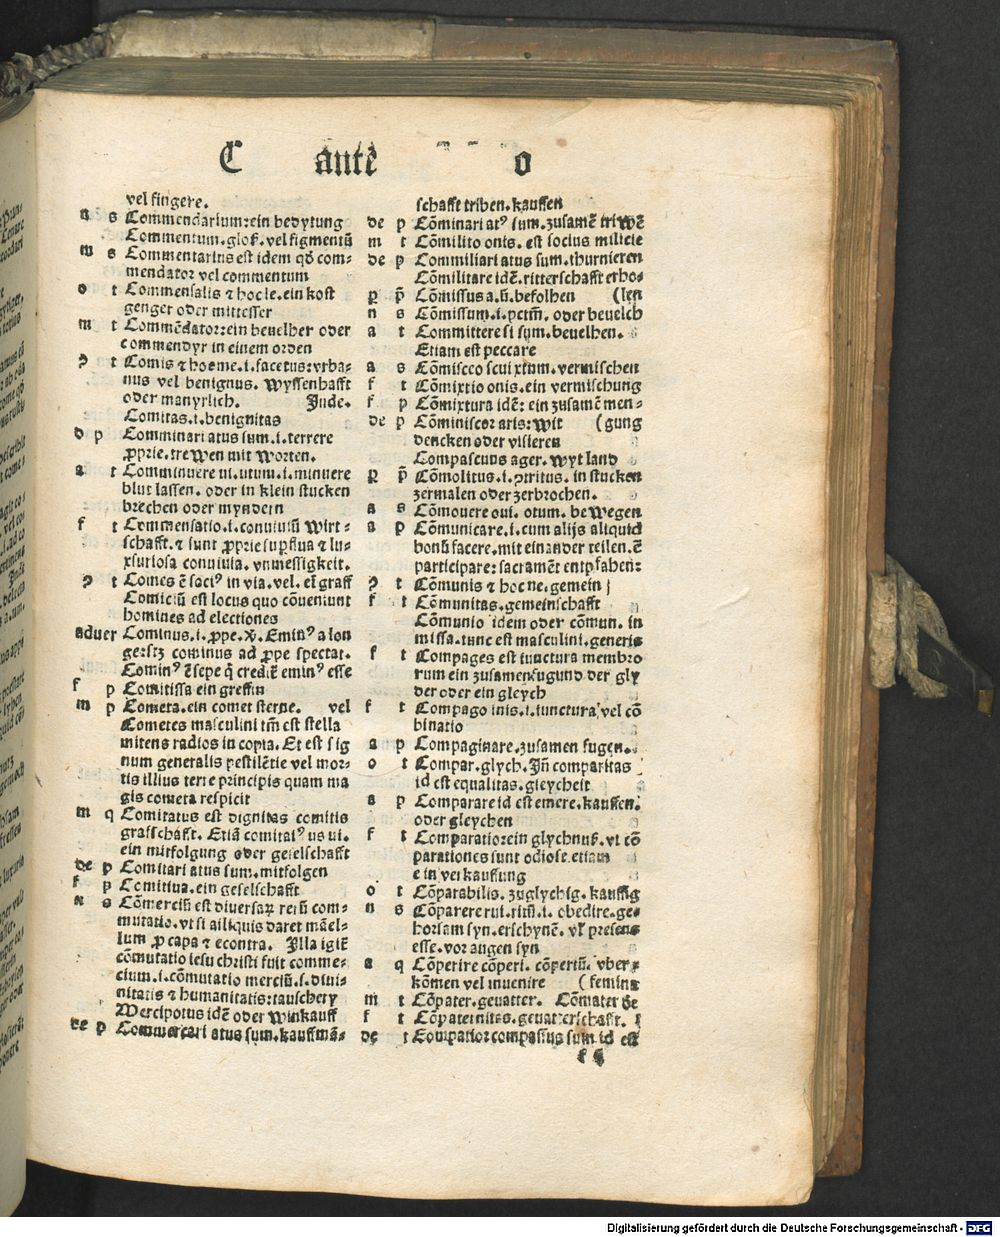 C antē o
vel fingere.
n s Commendarium:ein bedytung
Commentum.gloß.vel figmentū
m s Commentarius est idem qđ com-
mendator vel commentum
o t Commensalis ⁊ hoc le.ein kost
genger oder mittesser
m t Commēdator:ein beuelher oder
commendyr in einem orden
ꝯ t Comis ⁊ hoc me.i.facetus:vrba-
nus vel benignus. Wyssenhafft
oder manyrlich. Jnde.
Comitas.i.benignitas
d p Comminari atus sum.i.terrere
ꝓprie.trewen mit worten.
a t Comminuere ui.utum.i.minuere
blut lassen. oder in klein stucken
brechen oder myndern
f t Commensatio.i.conuiuiū Wirt-
schafft.⁊ sunt ꝓprie suꝑflua ⁊ lu-
xsuriosa conuiuia. vnmessigkeit.
ꝯ t Comes ē soci⁹ in via.vel. el graff
Comiciū est locus quo cōueniunt
homines ad electiones
aduer Cominus.i.ꝓpe. Emin⁹ a lon
ge cominus ad ꝓpe spectat.
Comin⁹ ēsepe q̄ credit̄ emin⁹ esse
f p Comitissa ein greffin
m p Cometa.ein comet sterne. vel
Cometes masculini tm̄ est stella
mitens radios in copia. Et est sig
num generalis pestilētie vel mor-
tis illius terre principis quam ma
gis cometa respicit
m q Comitatus est dignitas comitis
grafschafft. Etiā comitat⁹ us ui.
ein mitfolgung oder geselschafft
de p Comitari atus sum.mitfolgen
f p Comitiua.ein geselschafft
n s Cōmerciū est diuersaꝝ rerū com-
mutatio.vt si aliquis daret mātel-
lum ꝓ capa ⁊ econtra. Jlla igit̄
cōmutatio iesu christi fuit comme-
cium.i.cōmutatio merciū.s.diui-
nitatis ⁊ humanitatis:tauschery
Mercipotus idē oder Winkauff
de p Commercari atus sum.kauffmā-
schafft triben.kauffen
de p Cōminari at⁹ sum.zusamē triwē
m t Cōmilito onis. est socius milicie
de p Commiliari atus sum.thurnieren
Cōmilitare idē.ritterschafft erho-
ꝑ p̄ Cōmissus a.ū.befolhen (len
n s Cōmissum.i.pctm̄. oder beuelch
a t Committere si sum.beuelhen.
Etiam est peccare
a s Cōmisceo scui xtum.vermischen
f t Cōmixtio onis.ein vermischung
f p Cōmixtura idē: ein zusamē men-
de p Cōminiscor aris:wit (gung
dencken oder visieren
Compascuus ager.wyt land
ꝑ p̄ Cōmolitus.i.ꝯtritus. in stucken
zermalen oder zerbrochen.
a s Cōmouere oui. otum. bewegen
a p Cōmunicare.i.cum alijs aliquid
bonū facere.mit einander teilen.ē
participare:sacramēt entpfahen:
ꝯ t Cōmunis ⁊ hoc ne.gemein
f t Cōmunitas.gemeinschafft
Cōmunio idem oder cōmun. in
missa.tunc est masculini.generis
f t Compages est iunctura membro
rum ein zusamenfugund der gly
der oder ein gleych
f t Compago inis.i.iunctura vel cō
binatio
a p Compaginare.zusamen fugen.
o t Compar.glych. Jn̄ comparitas
id est equalitas.gleycheit
a p Comparare id est emere.kauffen.
oder gleychen
f t Comparatio:ein glychnuß.vt cō
parationes sunt odiose.etiam
ein verkauffung
o t Cōparabilis. zuglychig.kauffig
n s Cōparere rui.ritū.i. obedire.ge-
horsam syn.erschynē. vl̓ presens
esse.vor augen syn
a q Cōperire cōperi. cōpertū. vber-
kōmen vel inuenire (femine
m t Cōpater.geuatter. Cōmater de
f t Cōpaternitas.geuatterschafft.
de t Compatior compassus sum id est
Digitalisierung gefördert durch die Deutsche Forschungsgemeinschaft - DFG